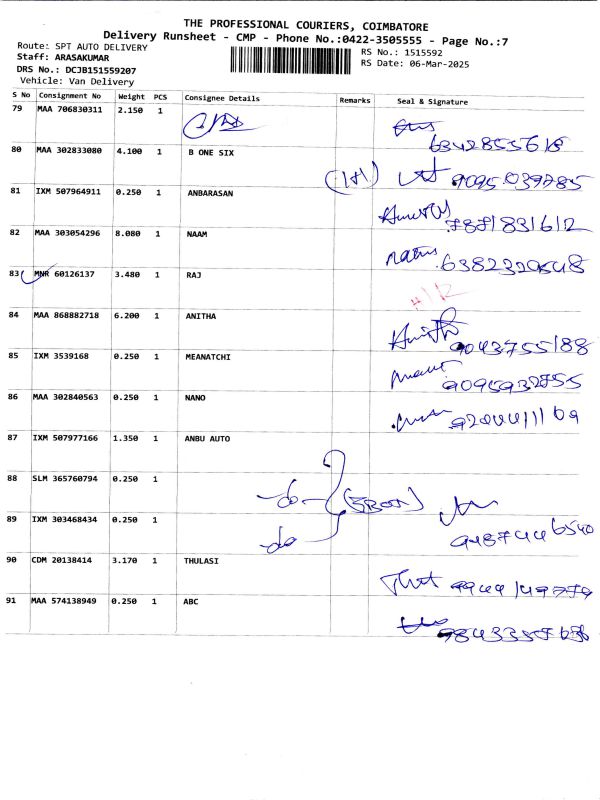 THE PROFESSIONAL COURIERS, COIMBATORE
Delivery Runsheet - CMP - Phone No.:0422-3505555 - Page No.:7
Route: SPT AUTO DELIVERY
Staff: ARASAKUMAR
DRS No.: DCJB151559207
Vehicle: Van Delivery
RS No.: 1515592
RS Date: 06-Mar-2025
S No Consignment No Weight PCS Consignee Details Remarks Seal & Signature
79 MAA 706830311 2.150 1
6342855618
80 MAA 302833080 4.100 1 B ONE SIX
9095039785
81 IXM 507964911 0.250 1 ANBARASAN
7871831612
82 MAA 303054296 8.080 1 NAAM
6382320548
83 MNR 60126137 3.480 1 RAJ
84 MAA 868882718 6.200 1 ANITHA
9043755188
85 IXM 3539168 0.250 1 MEANATCHI
9095932755
86 MAA 302840563 0.250 1 NANO
87 IXM 507977166 1.350 1 ANBU AUTO
88 SLM 365760794 0.250 1 -do-
89 IXM 303468434 0.250 1 -do
9487446540
90 CDM 20138414 3.170 1 THULASI
91 MAA 574138949 0.250 1 ABC